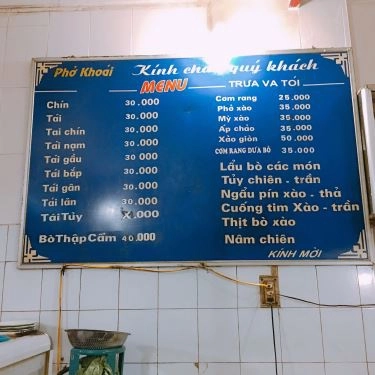 Phở Khoái Kính chào quý khách
MENU TRƯA VA TỐI
Chín 30.000
Tái 30.000
Tái chín 30.000
Tái nạm 30.000
Tái gầu 30.000
Tái bắp 30.000
Tái gân 30.000
Tái lăn 30.000
Tái Tủy X.000
Bò Thập Cẩm 40.000
Cơm rang 25.000
Phở xào 35.000
Mỳ xào 35.000
Áp chảo 35.000
Xào giòn 50.000
CƠM RANG DƯA BÒ 35.000
Lẩu bò các món
Tủy chiên - trần
Ngẩu pín xào - thả
Cuống tim Xào - trần
Thịt bò xào
Nầm chiên
KÍNH MỜI